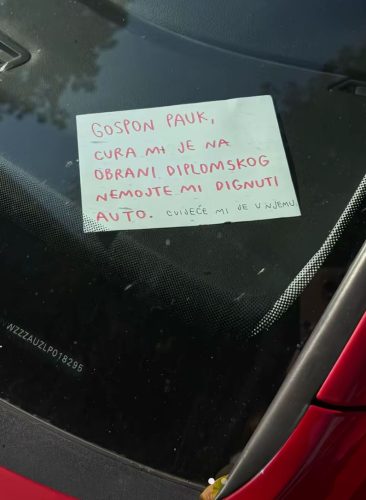 GOSPON PAUK,
CURA MI JE NA
OBRANI DIPLOMSKOG
NEMOJTE MI DIGNUTI
AUTO. CVIJEĆE MI JE U NJEMU
WZZZAUZLP018295